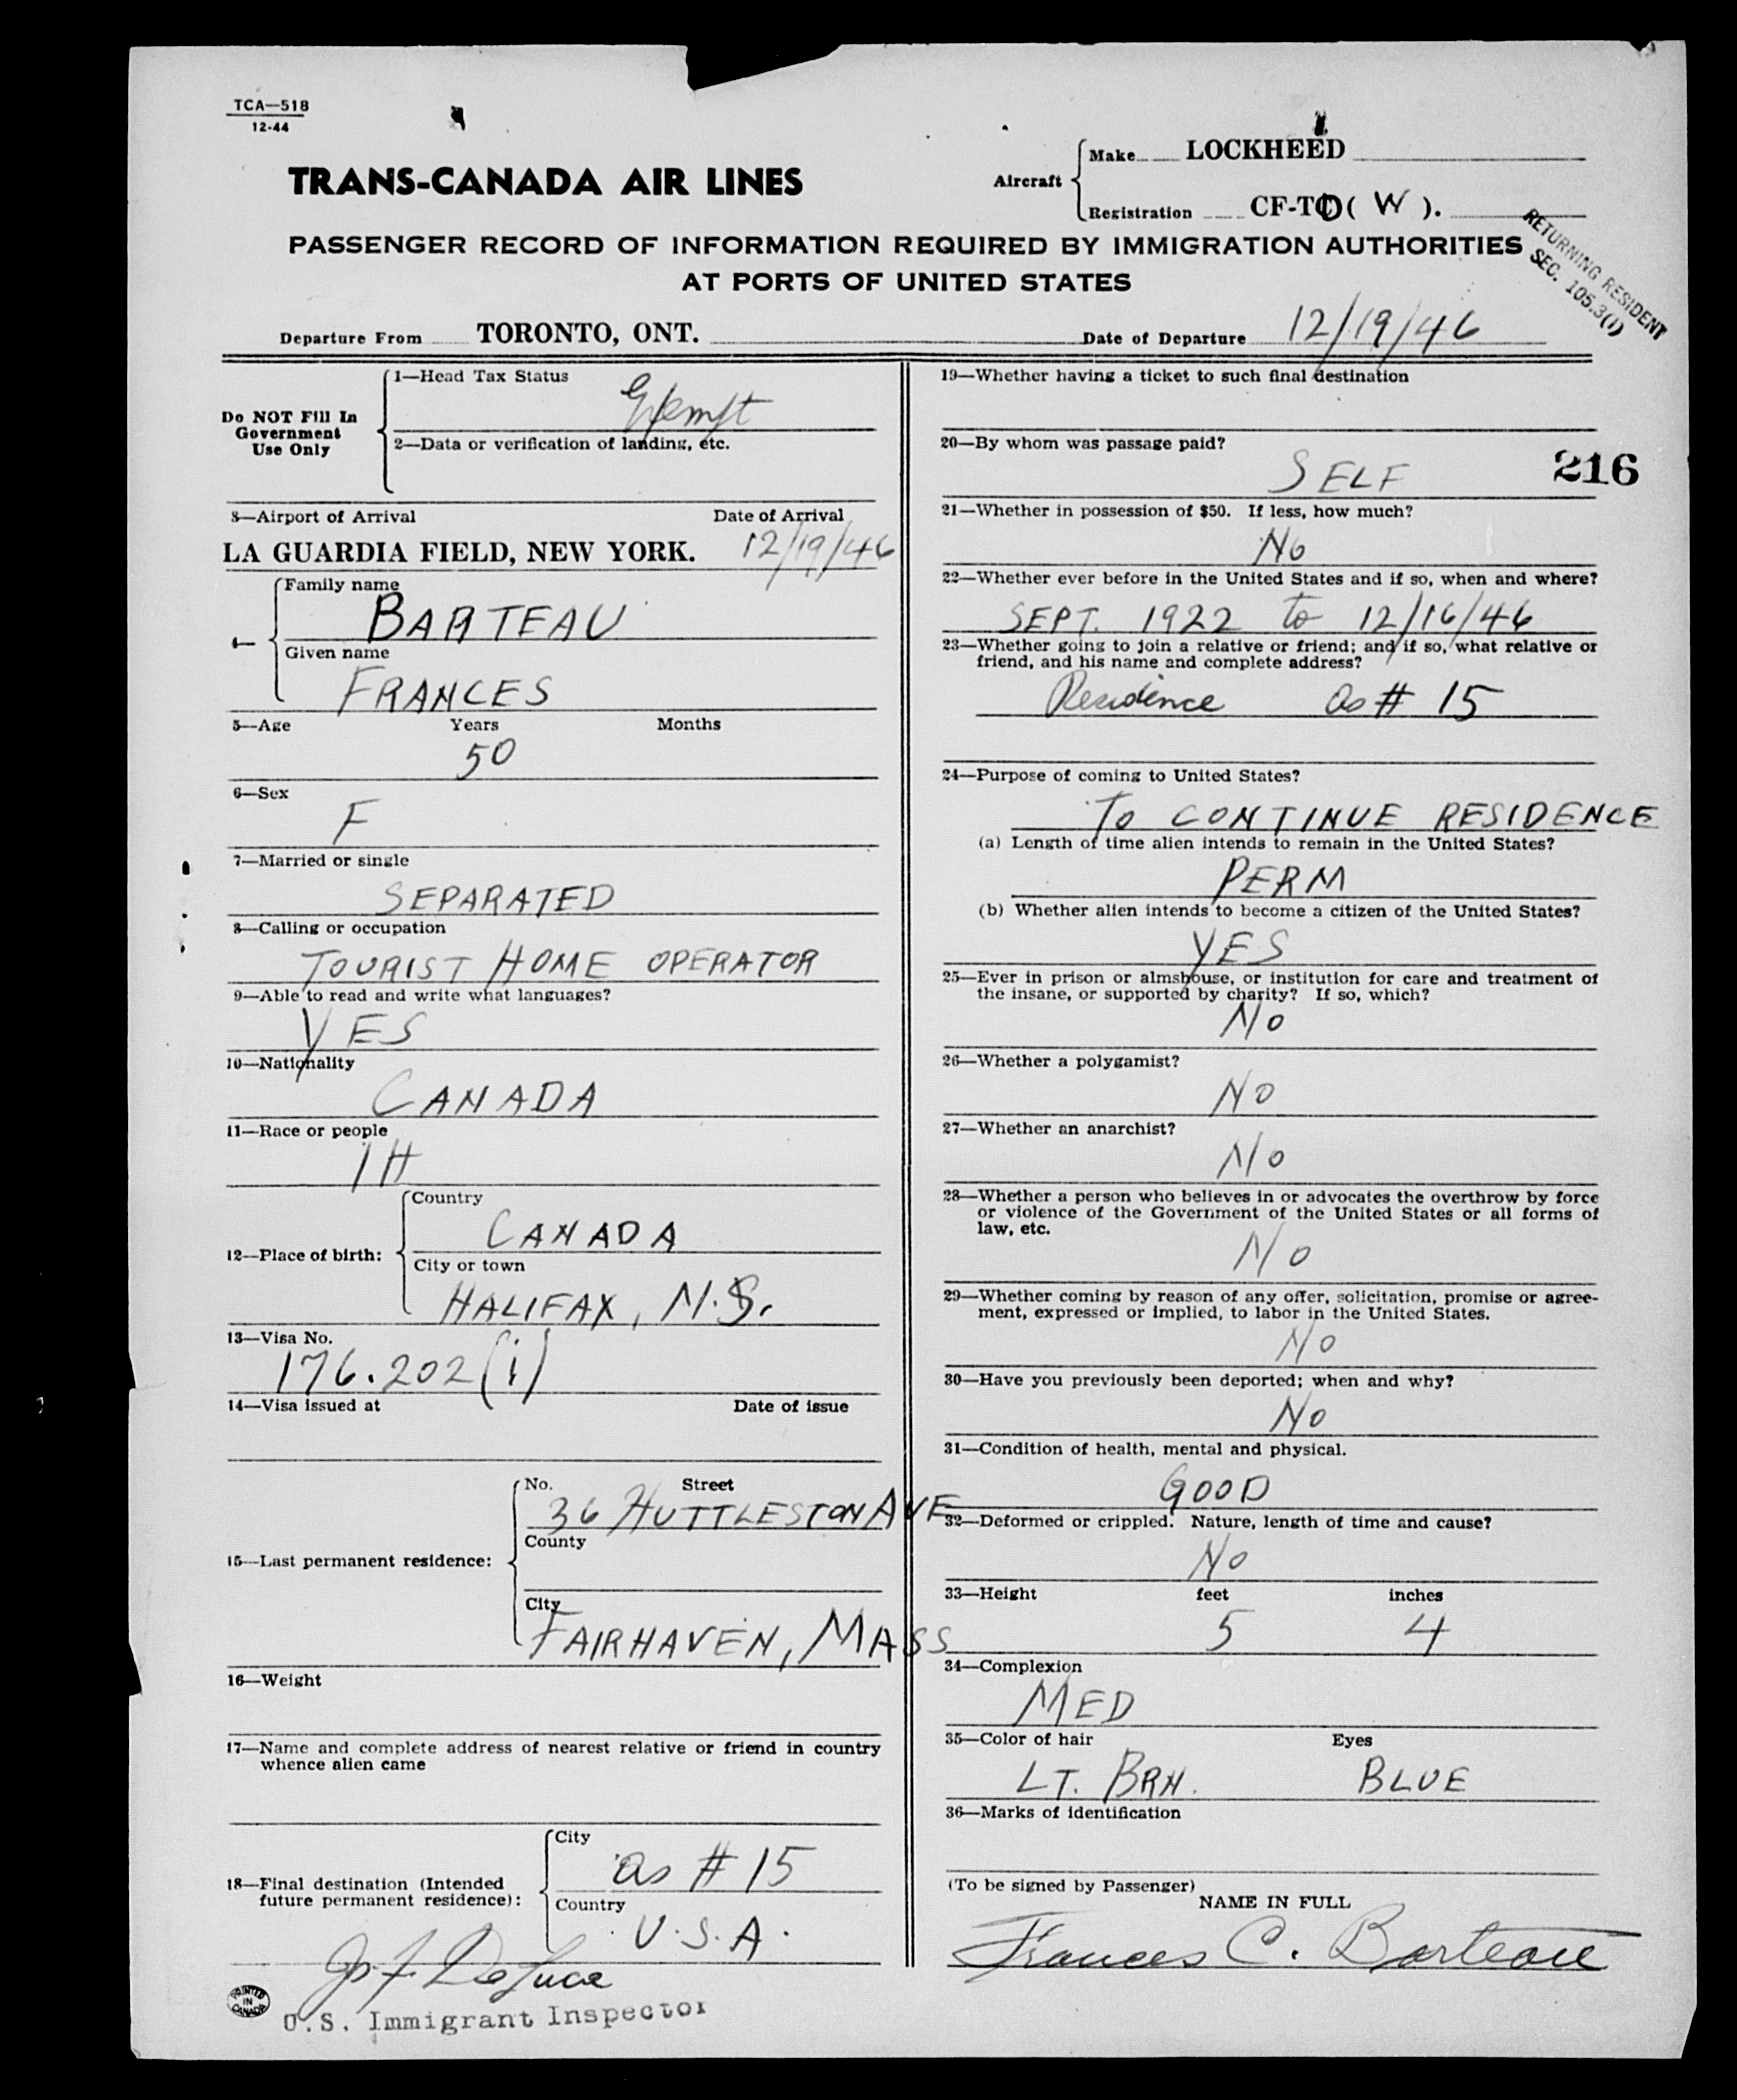 TCA—518
12-44
TRANS-CANADA AIR LINES
Aircraft
Make LOCKHEED
Registration CF-TC ( W ).
PASSENGER RECORD OF INFORMATION REQUIRED BY IMMIGRATION AUTHORITIES
AT PORTS OF UNITED STATES
RETURNING RESIDENT
SEC. 105.3(1)
Departure From TORONTO, ONT. Date of Departure 12/19/46
Do NOT Fill In
Government
Use Only
1—Head Tax Status
Exempt
2—Data or verification of landing, etc.
3—Airport of Arrival Date of Arrival
LA GUARDIA FIELD, NEW YORK. 12/19/46
4—
Family name
BARTEAU
Given name
FRANCES
5—Age Years Months
50
6—Sex
F
7—Married or single
SEPARATED
8—Calling or occupation
TOURIST HOME OPERATOR
9—Able to read and write what languages?
YES
10—Nationality
CANADA
11—Race or people
IH
12—Place of birth:
Country
CANADA
City or town
HALIFAX, N.S.
13—Visa No.
176.202(i)
14—Visa issued at Date of issue
15—Last permanent residence:
No. Street
36 HUTTLESTON AVE
County
City
FAIRHAVEN, MASS
16—Weight
17—Name and complete address of nearest relative or friend in country
whence alien came
18—Final destination (Intended
future permanent residence):
City
as # 15
Country
U.S.A.
Jo. F. DeLuca
U.S. Immigrant Inspector
PRINTED
IN
CANADA
19—Whether having a ticket to such final destination
20—By whom was passage paid?
SELF
216
21—Whether in possession of $50. If less, how much?
No
22—Whether ever before in the United States and if so, when and where?
SEPT. 1922 to 12/16/46
23—Whether going to join a relative or friend; and if so, what relative or
friend, and his name and complete address?
Residence as # 15
24—Purpose of coming to United States?
TO CONTINUE RESIDENCE
(a) Length of time alien intends to remain in the United States?
PERM
(b) Whether alien intends to become a citizen of the United States?
YES
25—Ever in prison or almshouse, or institution for care and treatment of
the insane, or supported by charity? If so, which?
No
26—Whether a polygamist?
NO
27—Whether an anarchist?
No
28—Whether a person who believes in or advocates the overthrow by force
or violence of the Government of the United States or all forms of
law, etc.
NO
29—Whether coming by reason of any offer, solicitation, promise or agree-
ment, expressed or implied, to labor in the United States.
No
30—Have you previously been deported; when and why?
No
31—Condition of health, mental and physical.
GOOD
32—Deformed or crippled. Nature, length of time and cause?
No
33—Height feet inches
5 4
34—Complexion
MED
35—Color of hair Eyes
LT. BRN. BLUE
36—Marks of identification
(To be signed by Passenger)
NAME IN FULL
Frances C. Barteau